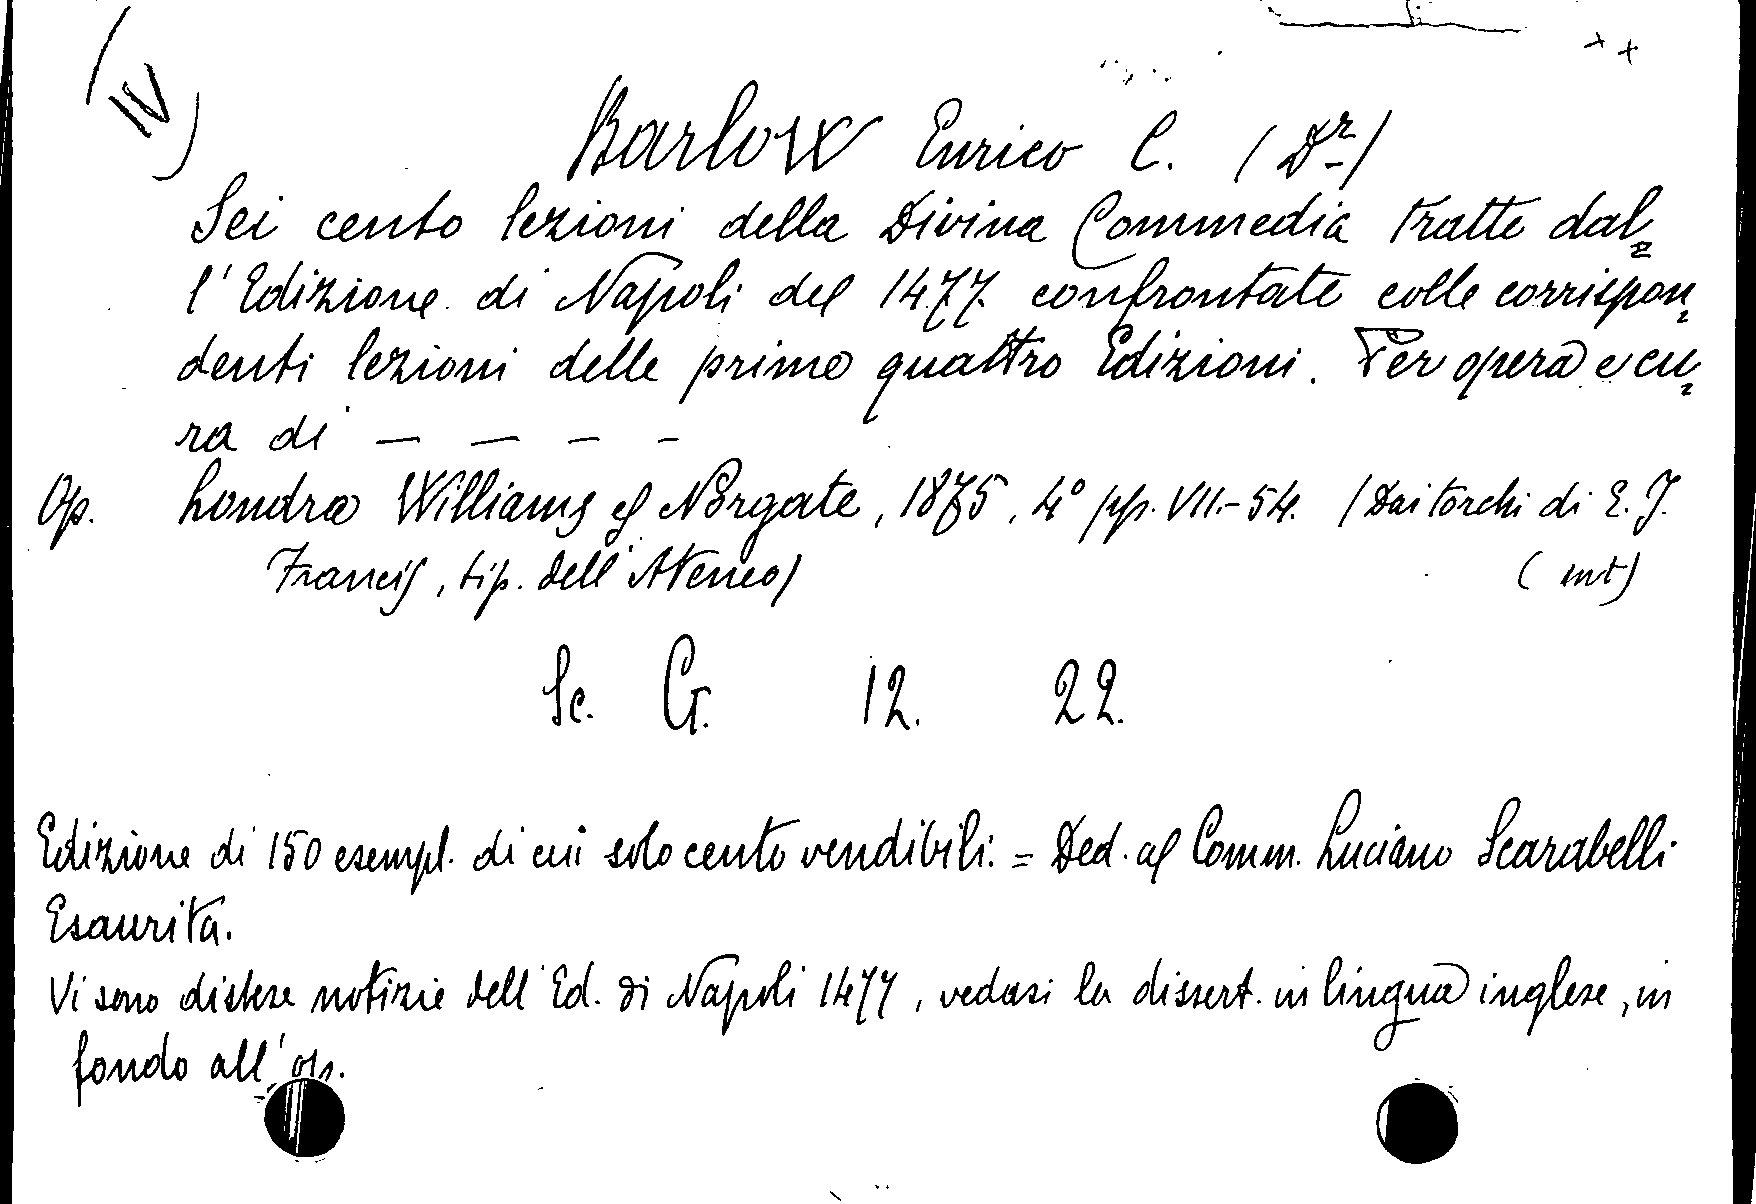 (IV)
Barlow Enrico C. (Dr)
Sei cento lezioni della Divina Commedia tratte dal=
l'Edizione di Napoli del 1477 confrontate colle corrispon=
denti lezioni delle prime quattro Edizioni. Per opera e cu=
ra di — — — —
Op. Londra Williams & Norgate, 1875, 4° pp. VII.-54. (Dai torchi di E. J.
Francis, tip. dell'Ateneo) (int)
Sc. G. 12. 22.
Edizione di 150 esempl. di cui solo cento vendibili. = Ded. al Comm. Luciano Scarabelli.
Esaurita.
Vi sono distese notizie dell'Ed. di Napoli 1477, vedasi la dissert. in lingua inglese, in
fondo all'op.